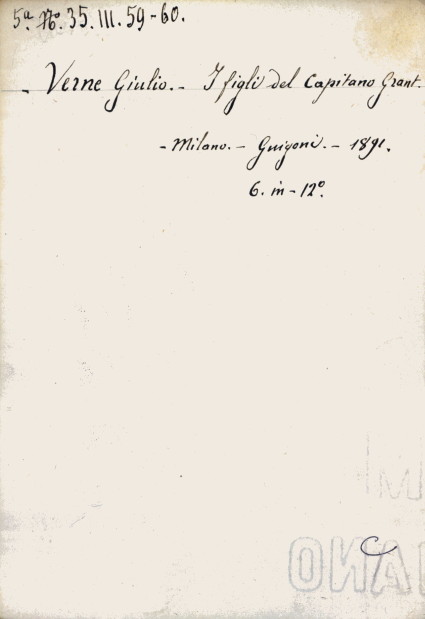 5ª Nº. 35. III. 59-60.
- Verne Giulio. - I figli del Capitano Grant.
- Milano. - Guigoni. - 1891.
6. in - 12º.